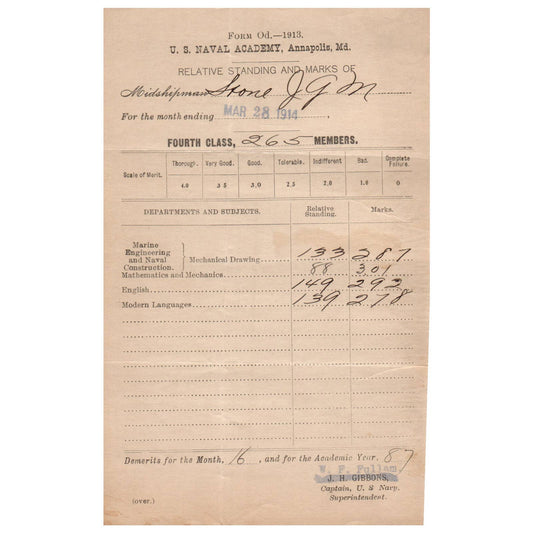 FORM Od.—1913.
U. S. NAVAL ACADEMY, Annapolis, Md.
RELATIVE STANDING AND MARKS OF
Midshipman Stone J G M
For the month ending MAR 28 1914.
FOURTH CLASS, 265 MEMBERS.
Scale of Merit. Thorough. Very Good. Good. Tolerable. Indifferent Bad. Complete Failure.
4.0 3.5 3.0 2.5 2.0 1.0 0
DEPARTMENTS AND SUBJECTS. Relative Standing. Marks.
Marine Engineering and Naval Construction. Mechanical Drawing 133 287
Mathematics and Mechanics 88 3.01
English 149 292
Modern Languages 139 278
Demerits for the Month, 16, and for the Academic Year, 87
W. F. Fullam
J. H. GIBBONS,
Captain, U. S Navy.
Superintendent.
(over.)